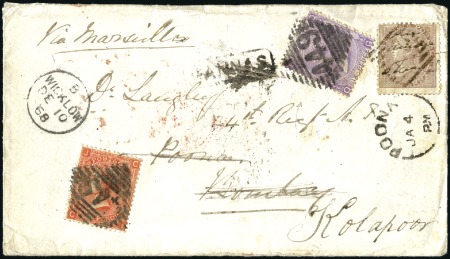 Via Marseilles
ANNAS
449
WICKLOW
5
DE 10
68
Dr. Langley
4th Regt
Poona
Bombay
Kolapoor
POONA
JA 4
PM